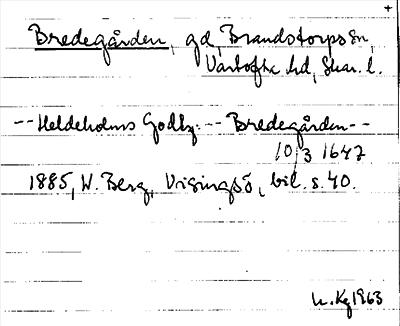 +
Bredegården, gd, Brandstorps sn,
Vartofta hd, Skar. l.
-- Heldeholms Godtz: -- Bredegården --
10/3 1647
1885, W. Berg, Visingsö, bil. s. 40.
Kg 1963